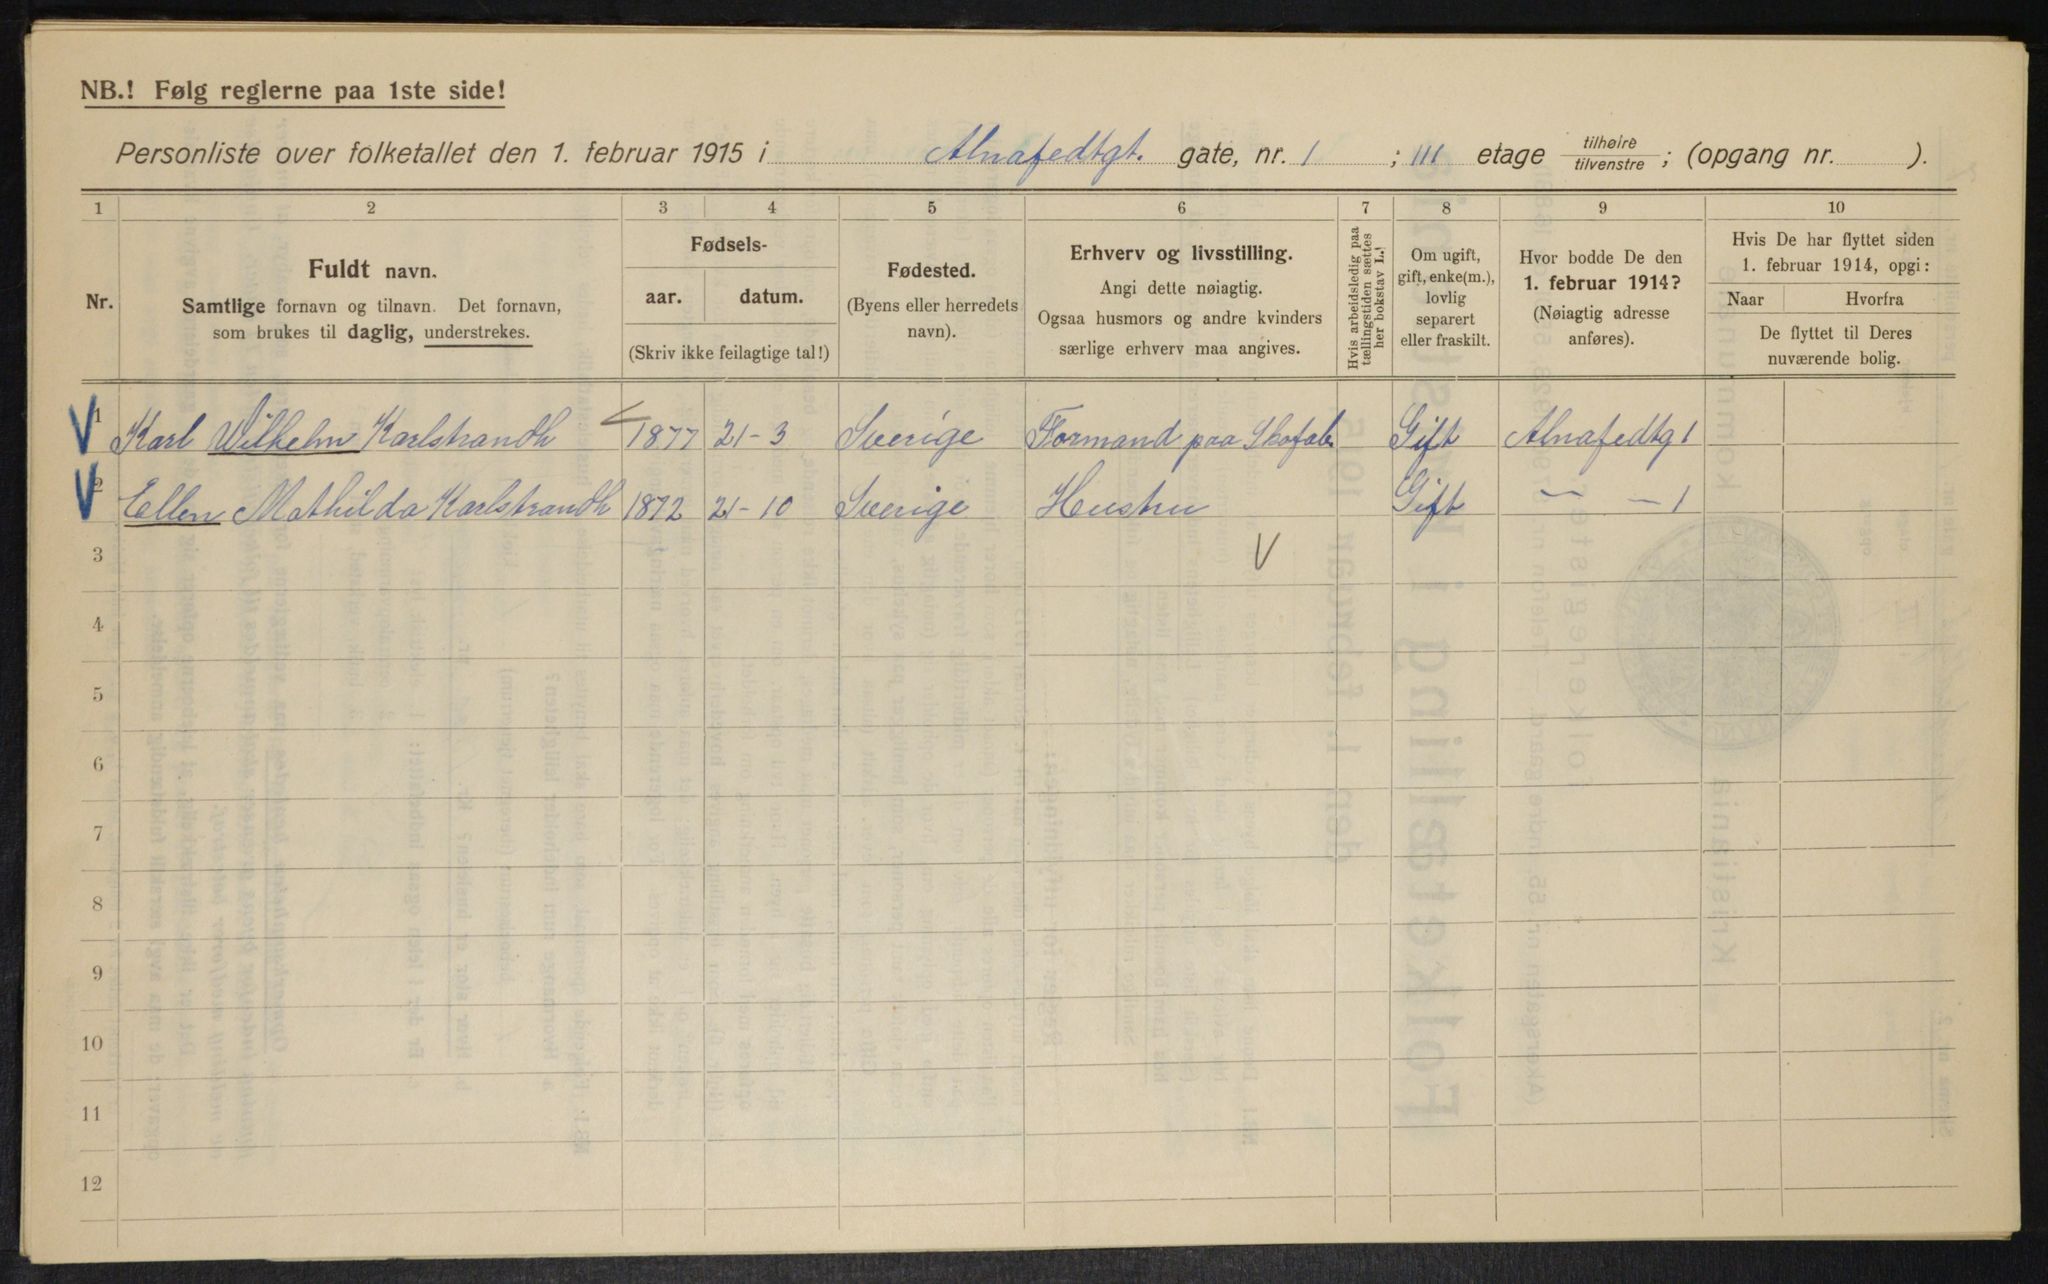 NB.! Følg reglerne paa 1ste side!
Personliste over folketallet den 1. februar 1915 i Alnafedtgt. gate, nr. 1 ; III etage tilhøire / tilvenstre ; (opgang nr. ).
1 2 3 4 5 6 7 8 9 10
Nr.
Fuldt navn.
Samtlige fornavn og tilnavn. Det fornavn,
som brukes til daglig, understrekes.
Fødsels-
aar. datum.
(Skriv ikke feilagtige tal!)
Fødested.
(Byens eller herredets
navn).
Erhverv og livsstilling.
Angi dette nøiagtig.
Ogsaa husmors og andre kvinders
særlige erhverv maa angives.
Hvis arbeidsledig paa
tællingstiden sættes
her bokstav L.!
Om ugift,
gift, enke(m.),
lovlig
separert
eller fraskilt.
Hvor bodde De den
1. februar 1914?
(Nøiagtig adresse
anføres).
Hvis De har flyttet siden
1. februar 1914, opgi:
Naar Hvorfra
De flyttet til Deres
nuværende bolig.
1 Karl Wilhelm Karlstrandh 1877 21-3 Sverige Formand paa Skofab. Gift Alnafedtg 1
2 Ellen Mathilda Karlstrandh 1872 21-10 Sverige Hustru Gift — — 1
3
4
5
6
7
8
9
10
11
12